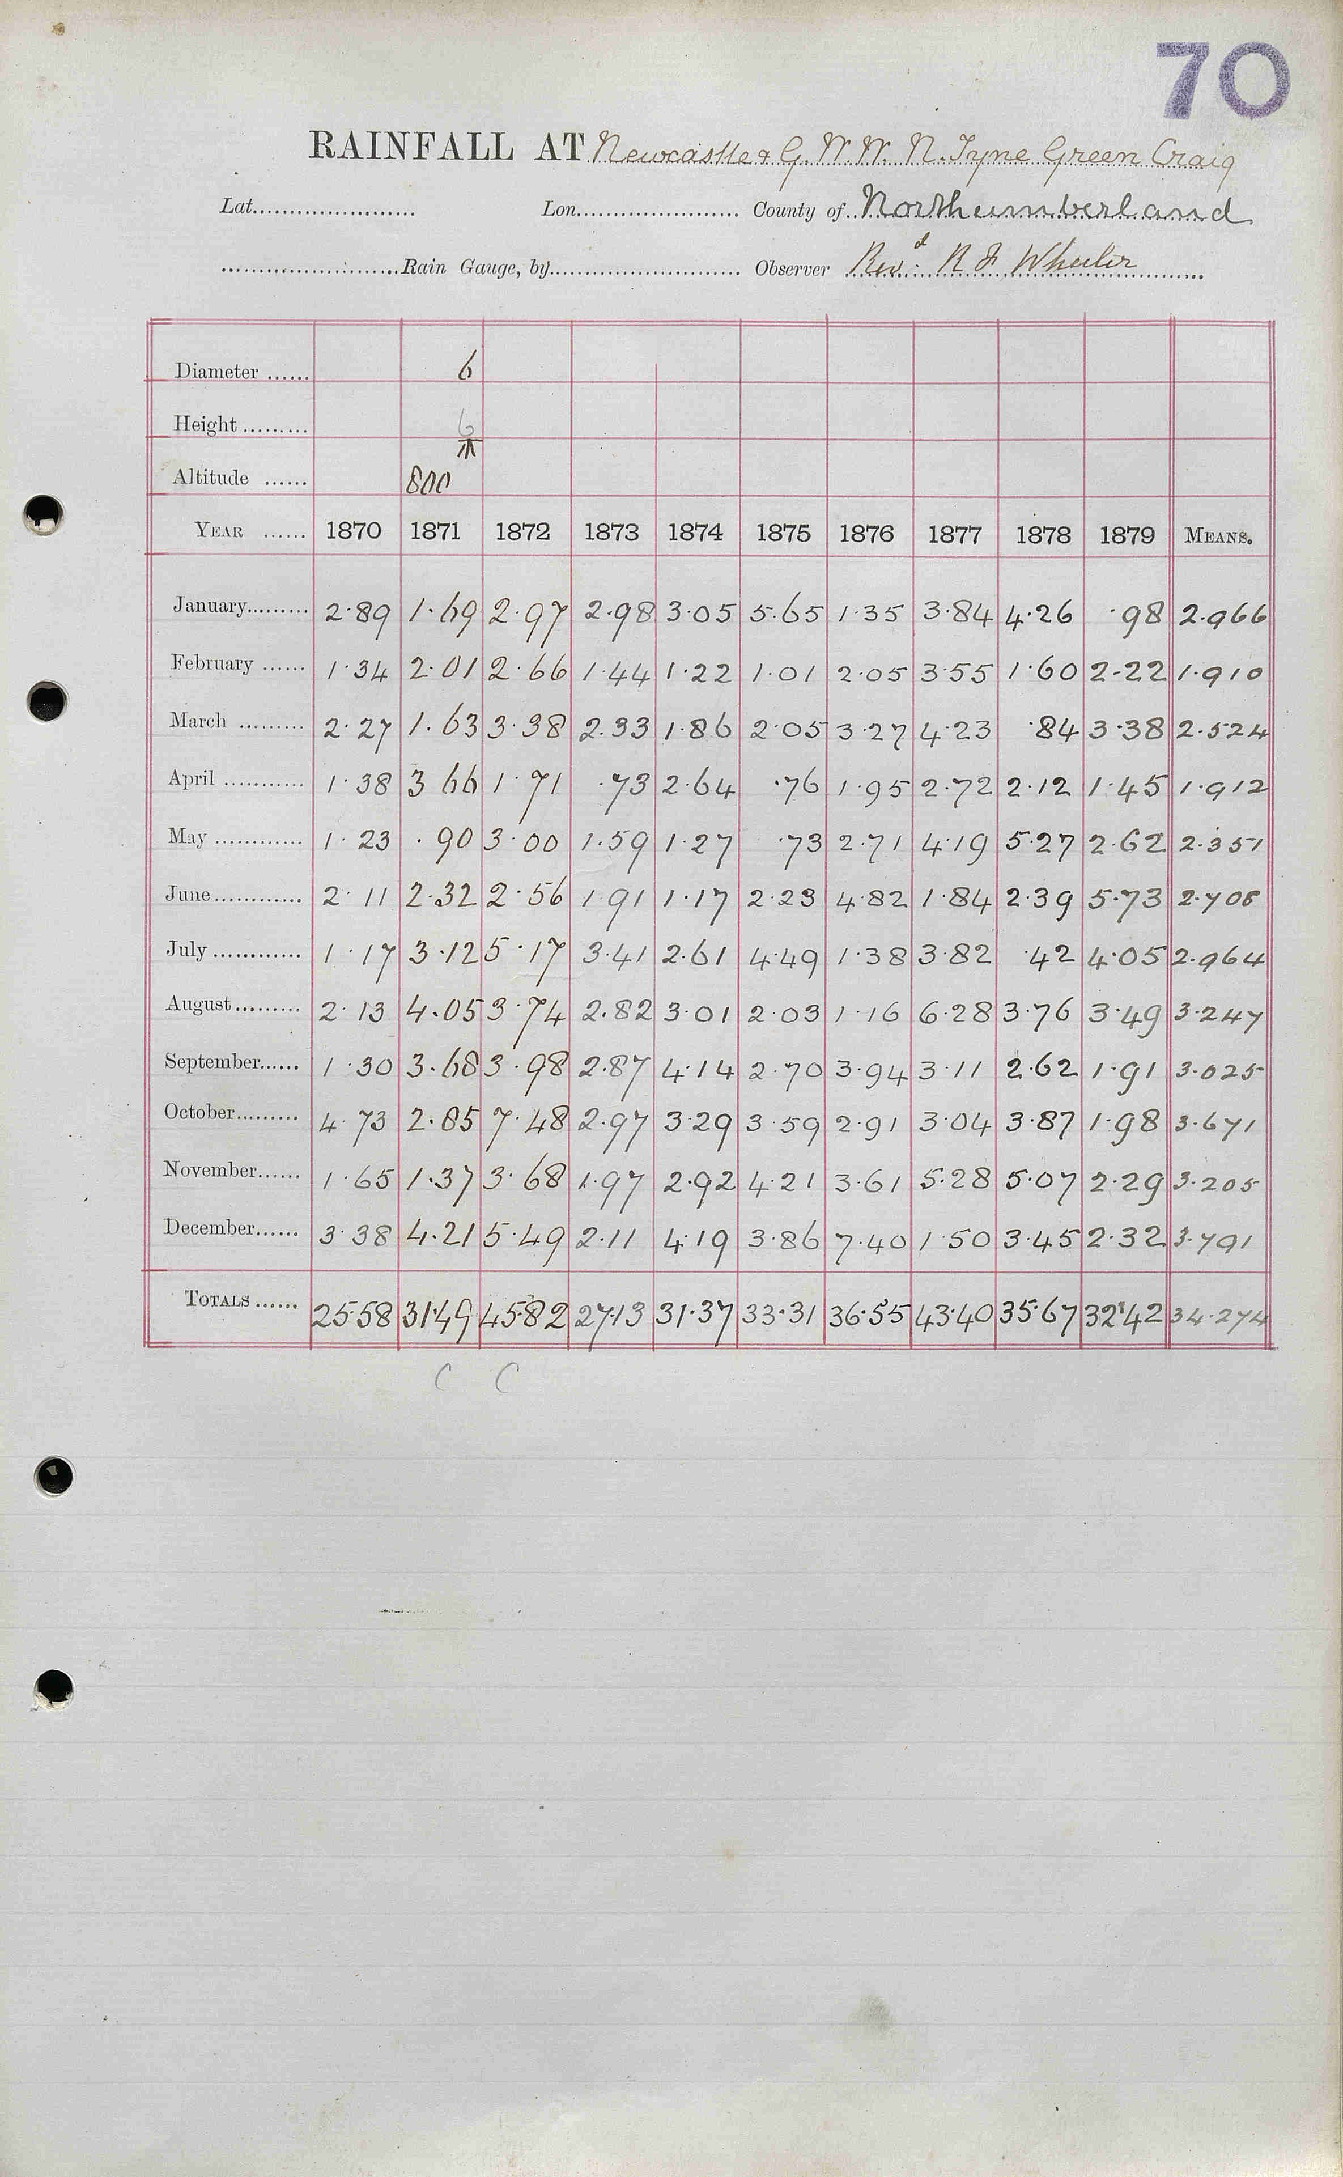 70
RAINFALL AT Newcastle & G. W. W. N. Tyne Green Craig
Lat. Lon. County of Northumberland
Rain Gauge, by Observer Revd. R F Wheeler
Diameter ...... 6
Height ......... 6
Altitude ...... 800
YEAR ...... 1870 1871 1872 1873 1874 1875 1876 1877 1878 1879 MEANS.
January ......... 2·89 1·69 2·97 2·98 3·05 5·65 1·35 3·84 4·26 ·98 2·966
February ...... 1·34 2·01 2·66 1·44 1·22 1·01 2·05 3·55 1·60 2·22 1·910
March ......... 2·27 1·63 3·38 2·33 1·86 2·05 3·27 4·23 ·84 3·38 2·524
April ........... 1·38 3 66 1·71 ·73 2·64 ·76 1·95 2·72 2·12 1·45 1·912
May ............ 1·23 ·90 3·00 1·59 1·27 ·73 2·71 4·19 5·27 2·62 2·351
June ............ 2·11 2·32 2·56 1·91 1·17 2·23 4·82 1·84 2·39 5·73 2·708
July ............ 1·17 3·12 5·17 3·41 2·61 4·49 1·38 3·82 ·42 4·05 2·964
August ......... 2·13 4·05 3·74 2·82 3·01 2·03 1·16 6·28 3·76 3·49 3·247
September ...... 1·30 3·68 3·98 2·87 4·14 2·70 3·94 3·11 2·62 1·91 3·025
October ......... 4·73 2·85 7·48 2·97 3·29 3·59 2·91 3·04 3·87 1·98 3·671
November ...... 1·65 1·37 3·68 1·97 2·92 4·21 3·61 5·28 5·07 2·29 3·205
December ...... 3·38 4·21 5·49 2·11 4·19 3·86 7·40 1·50 3·45 2·32 3·791
TOTALS ...... 25·58 31·49 45·82 27·13 31·37 33·31 36·55 43·40 35·67 32·42 34·274
C C